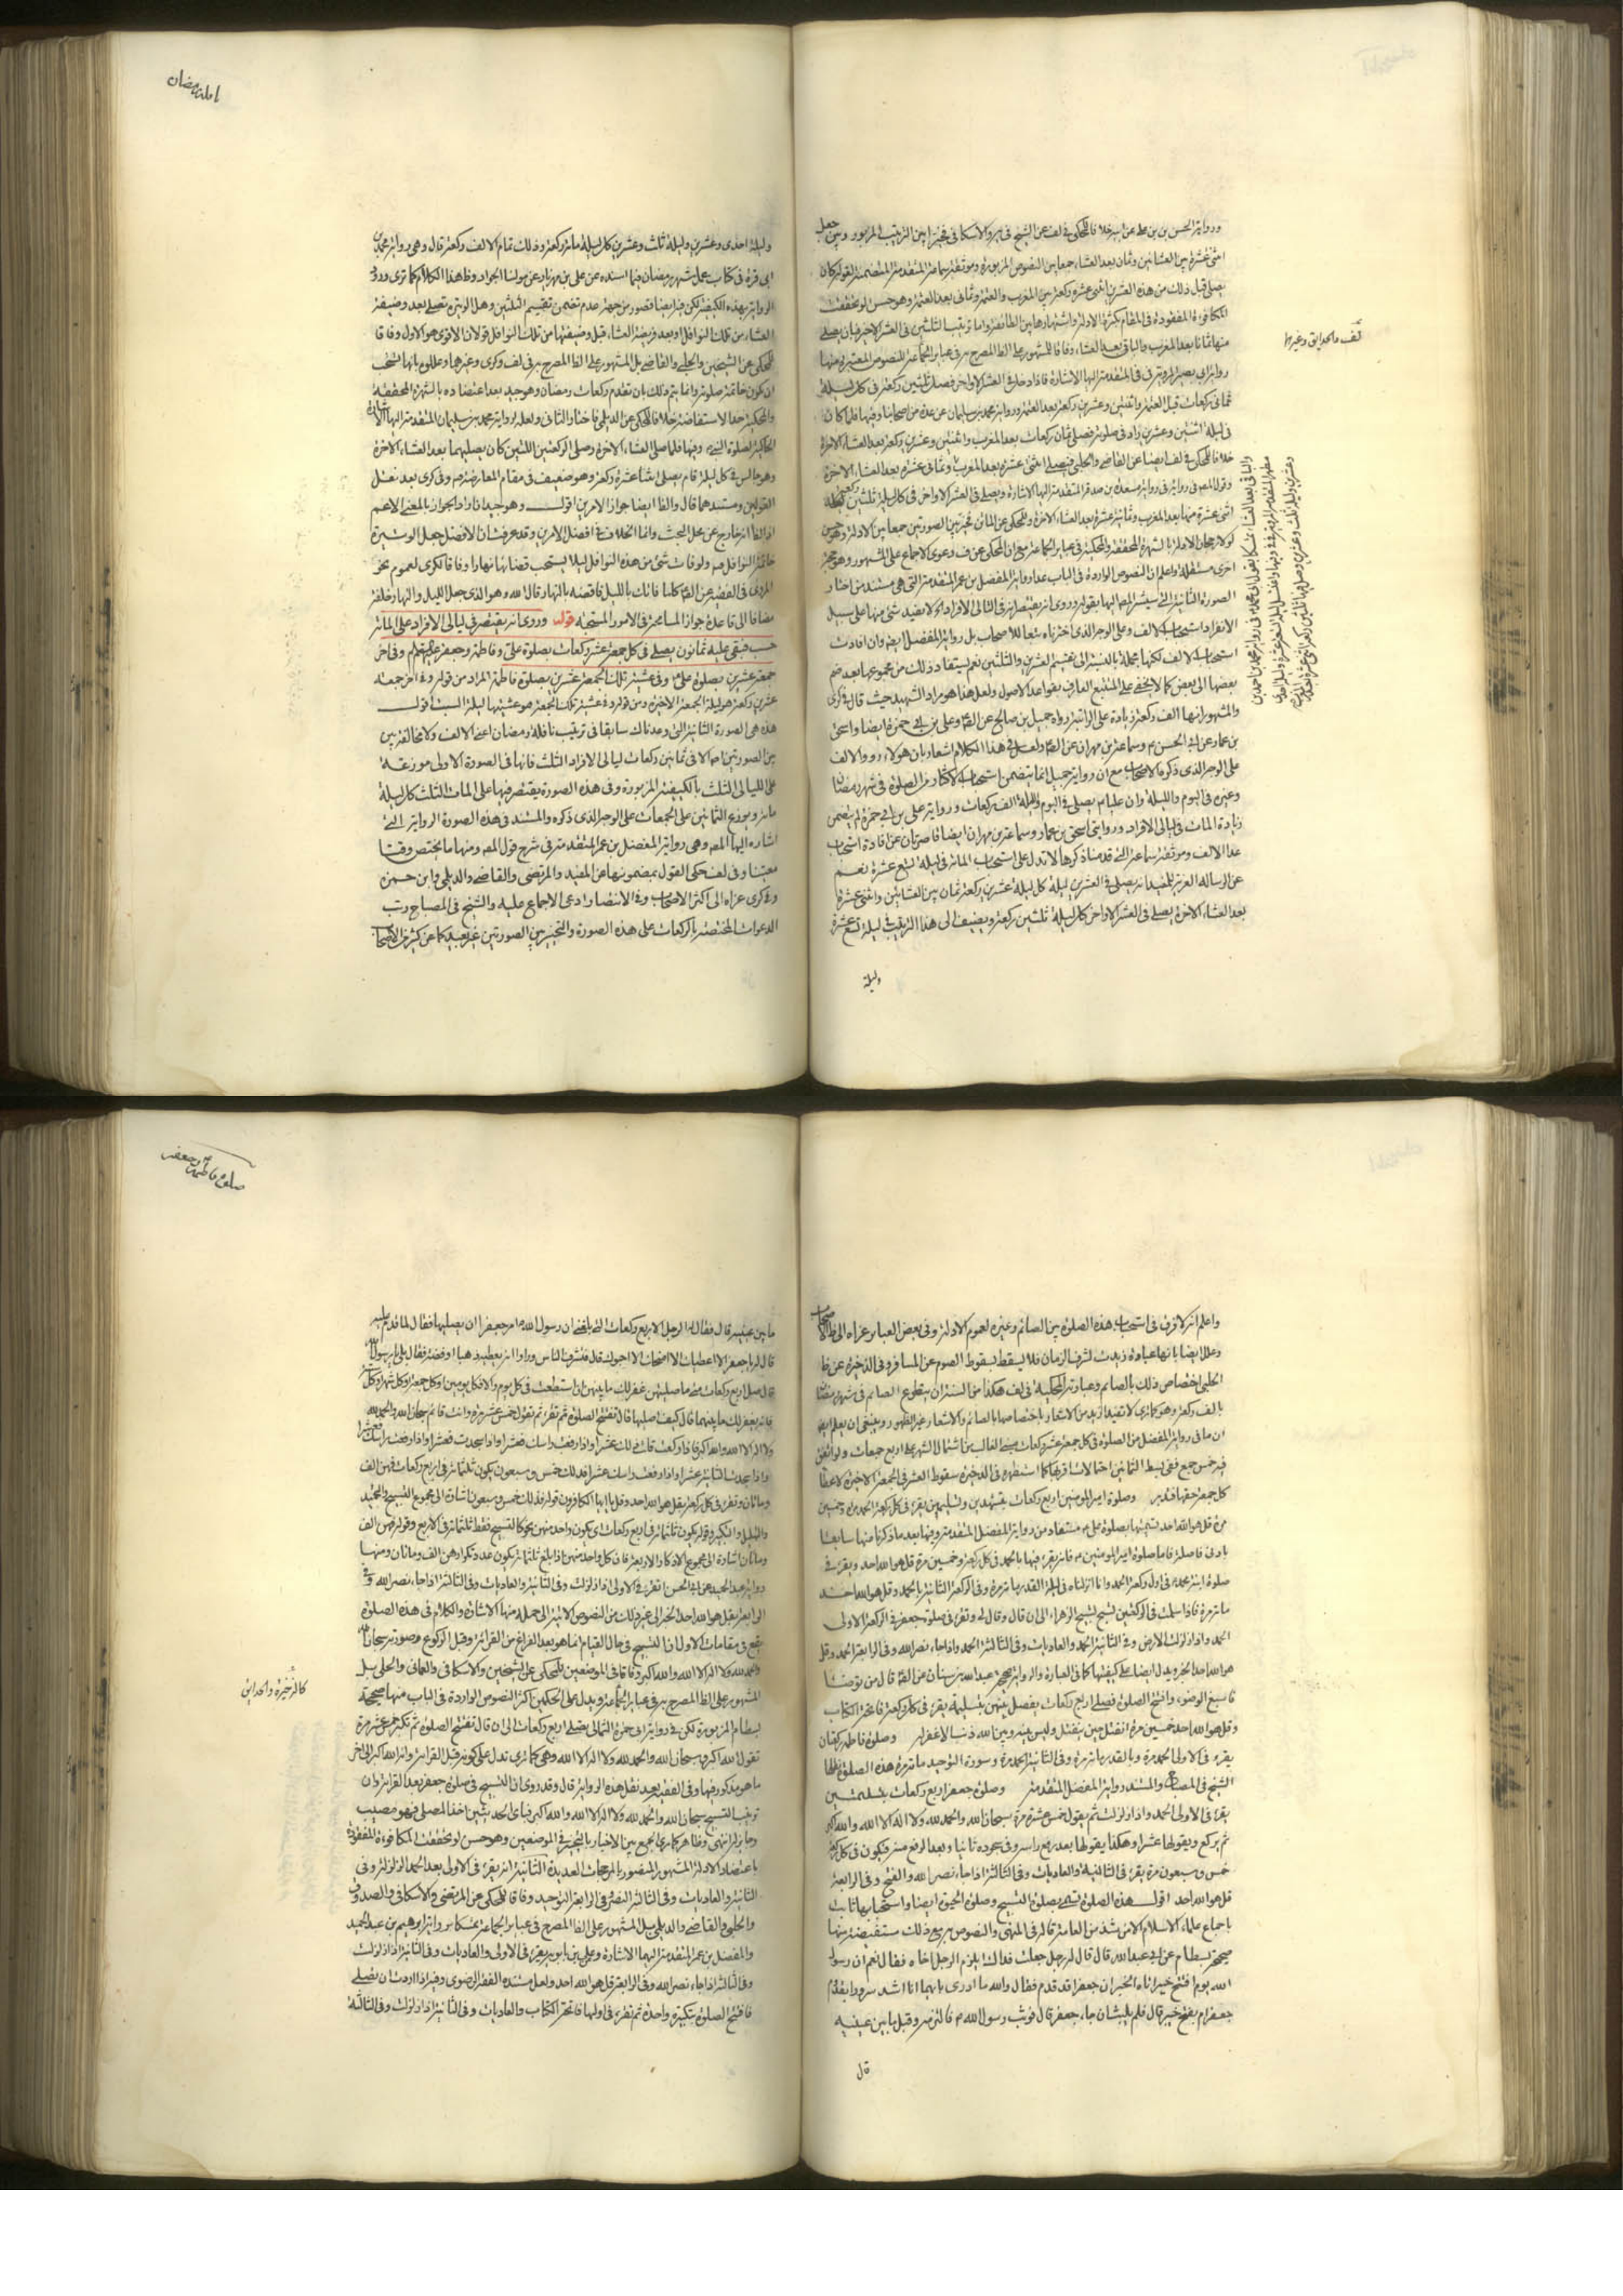 ورواية الحسن بن علي عن ابيه خلافا للمحكي في لف عن الشيخ في ير والاسكافي فخيرا بين الترتيب المزبور وبين جعل
اثنتى عشرة بين العشائين وثمان بعد العشاء جمعا بين النصوص المزبورة وموثقة سماعة المتقدمة المتضمنة لقوله كان
يصلى قبل ذلك من هذه العشرين اثنتى عشرة ركعة بين المغرب والعتمة وثمانى بعد العتمة وهو حسن لو تحققت
المكافوة المفقودة في المقام بكثرة الادلة واشتهارها بين الطائفة واما ترتيب الثلثين في العشر الاخر فبان يصلى
منها ثمانا بعد المغرب والباقى بعد العشاء وفاقا للمشهور على الظا المصرح به في عباير الجماعة للنصوص المعتبرة منها
رواية ابى بصير المروية في المتقدمة اليها الاشارة فاذا دخل في العشر الاواخر فصل ثلثين ركعة في كل ليلة
ثمانى ركعات قبل العتمة واثنتين وعشرين ركعة بعد العتمة ورواية محمد بن سليمان عن عدة من اصحابنا وفيها فلما كان
في ليلة اثنتين وعشرين زاد في صلوته فصلى ثمان ركعات بعد المغرب واثنتين وعشرين ركعة بعد العشاء الاخرة
خلافا للمحكى في لف ايضا عن القاضى والحلبى فيصلى اثنتى عشرة بعد المغرب وثمانى عشرة بعد العشاء الاخرة
اثنتى عشرة منها بعد المغرب وثمانية عشرة بعد العشاء الاخرة وللمحكى عن الماتن فخير بين الصورتين جمعا بين الادلة وهو حسن
لولا رجحان الادلة بالشهرة المحققة والمحكية في عباير الجماعة مع ان المحكى عن ف دعوى الاجماع على المشهور وهو حجة
اخرى مستقلة واعلم ان النصوص الواردة في الباب عدا رواية المفضل بن عمر المتقدمة التى هى مستند من اختار
الصورة الثانية التى سيشير المصـ اليها بقوله وروى انه يقتصر في ليالى الافراد لا يفيد شئ منها على سبيل
الانفراد استحباب الالف وعلى الوجه الذى اخترناه تبعا للاصحاب بل رواية المفضل ايضا وان افادت
استحباب الالف لكنها مجملة بالنسبة الى تقسيم العشرين والثلثين نعم يستفاد ذلك من مجموعها بعد ضم
بعضها الى بعض كما لا يخفى على المتتبع العارف بقواعد الاصول ولعل هذا هو مراد الشهيد حيث قال في كرى
والمشهور انها الف ركعة زيادة على الراتبة رواه جميل بن صالح عن الصا وعلى بن ابى حمزة ايضا واسحق
بن عمار عن ابى الحسن وسماعة بن مهران عن الصا ولعل في هذا الكلام اشعار بان هولاء رووا الالف
على الوجه الذى ذكره الاصحاب مع ان رواية جميل انما يتضمن استحباب الاكثار من الصلوة في شهر رمضان
وغيره في اليوم والليلة وان عليا يصلى في اليوم والليلة الف ركعات ورواية على بن ابى حمزة لم يتضمن
زيادة المات في ليالى الافراد وروايتى اسحق بن عمار وسماعة بن مهران ايضا قاصرتان عن افادة استحباب
عدا الالف وموثقة سماعة التى قدمنا ذكرها لا تدل على استحباب المائة في ليلة تسع عشرة نعم
عن الرسالة العزية للمفيد انه يصلى في العشرين ليلة كل ليلة عشرين ركعة ثمان بين العشائين واثنتى عشرة
بعد العشاء الاخرة يصلى في العشر الاواخر كل ليلة ثلثين ركعة ويضيف الى هذا الترتيب في ليلة تسع عشرة
وليلة
لف والحدايق وغيرها
وليلة احدى وعشرين وليلة ثلث وعشرين كل ليلة مائة ركعة وذلك تمام الالف ركعة قال وهى رواية محمد بن
ابى قرة في كتاب عمل شهر رمضان فيما اسنده عن على بن مهزيار عن مولنا الجواد وظ هذا الكلام كما ترى ورود
الرواية بهذه الكيفية لكن فيه ايضا قصور من جهة عدم تضمن تقسيم الثلثين وهل الوتيرة تصلى بعد وضيفة
العشاء من تلك النوافل او بعد فريضة العشاء قبل وضيفتها من تلك النوافل قولان الاقوى هو الاول وفاقا
للمحكى عن الشيخين والحلى والقاضى بل المشهور على الظا المصرح به في لف وكرى وغيرهما وعللوه بانها يستحب
ان يكون خاتمة صلوته وانما يتم ذلك بان تقدم ركعات رمضان وهو جيد بعد اعتضاده بالشهرة المحققة
والمحكية حد الاستفاضة خلافا للمحكى عن الديلمى فاختار الثانى ولعله لرواية محمد بن سليمان المتقدمة اليها الاشارة
الحاكية لصلوة النبى وفيها فلما صلى العشاء الاخرة وصلى الركعتين اللتين كان يصليهما بعد العشاء الاخرة
وهو جالس في كل ليلة قام يصلى اثنتا عشرة ركعة وهو ضعيف في مقام المعارضة وفي كرى بعد نقل
القولين ومستندهما قال والظا ايضا جواز الامرين اقول وهو جيد ان اراد الجواز بالمعنى الاعم
اذ الظا انه خارج عن محل البحث وانما الخلاف في افضل الامرين وقد عرفت ان الافضل جعل الوتيرة
خاتمة النوافل ولو فات شئ من هذه النوافل ليلا يستحب قضائها نهارا وفاقا لكرى لعموم نحو
المروى في الفقيه عن الصا كلما فاتك بالليل فاقضه بالنهار قال الله وهو الذى جعل الليل والنهار خلفة
مضافا الى قاعدة جواز المسامحة في الامور المستحبة قوله وروى انه يقتصر في ليالى الافراد على المائة
حسب فيبقى عليه ثمانون يصلى في كل جمعة عشر ركعات بصلوة على وفاطمة وجعفر عليهم السلام وفي اخر
جمعة عشرين بصلوة على وفي عشية تلك الجمعة عشرين بصلوة فاطمة المراد من قوله وفي اخر جمعة
عشرين ركعة هو ليلة الجمعة الاخيرة ومن قوله وفي عشية تلك الجمعة هو عشيتها ليلة السبت اقول
هذه هى الصورة الثانية التى وعدناك سابقا في ترتيب نافلة رمضان اعنى الالف ولا مخالفة بين
بين الصورتين اجمالا في ثمانين ركعات ليالى الافراد الثلث فانها في الصورة الاولى موزعة
على الليالى الثلث بالكيفية المزبورة وفي هذه الصورة يقتصر فيها على المات الثلث كل ليلة
مائة ويوزع الثمانين على الجمعات على الوجه الذى ذكره والمستند في هذه الصورة الرواية التى
اشار اليها المصـ وهى رواية المفضل بن عمر المتقدمة في شرح قول المصـ ومنها ما يختص وقتا
معينا وفي لف حكى القول بمضمونها عن المفيد والمرتضى والقاضى والديلمى وابن حمزه
وفي كرى عزاه الى اكثر الاصحاب وفي الانتصار ادعى الاجماع عليه والشيخ في المصباح رتب
الدعوات المختصة بالركعات على هذه الصورة والتخيير بين الصورتين غير بعيد كما عن كثير من الاصحاب
واعلم انه لا فرق في استحباب هذه الصلوة بين الصائم وغيره لعموم الادلة وفي بعض العباير عزاه الى ظ الاصحاب
وعلل ايضا بانها عبادة زيدت لشرف الزمان فلا يسقط بسقوط الصوم عن المسافر وفي الذخيرة عن ظا
الحلبى اختصاص ذلك بالصائم وعبارته المحكية في لف هكذا من السنة ان يتطوع الصائم في شهر رمضان
بالف ركعة وهو كما ترى لا تفيد ازيد من الاشعار باختصاصها بالصائم والاشعار غير الظهور وينبغى ان يعلم ايضا
ان ما في رواية المفضل من الصلوة في كل جمعة عشر ركعات مبنى الغالب من اشتمال الشهر على اربع جمعات ولو اتفق
فيه خمس جمع ففى بسط الثمانين احتمالات اقربها كما استظهره في الذخيرة سقوط العشر في الجمعة الاخيرة لاعطاء
كل جمعة حقها فتدبر وصلوة امير المومنين اربع ركعات بتشهدين وتسليمتين يقرء في كل ركعة الحمد مرة وخمسين
مرة قل هو الله احد تسميتها بصلوة على مستفاد من رواية المفضل المتقدمة وفيها بعد ما ذكرنا منها سابقا
بادنى فاصلة فاما صلوة امير المومنين فانه يقرء فيها بالحمد في كل ركعة وخمسين مرة قل هو الله احد ويقرء في
صلوة ابنة محمد في اول ركعة الحمد وانا انزلناه في ليلة القدر مائة مرة وفي الركعة الثانية بالحمد وقل هو الله احد
مائة مرة فاذا سلمت في الركعتين تسبح تسبيح الزهراء الى ان قال وقال لى وتقرء في صلوة جعفر في الركعة الاولى
الحمد واذا زلزلت الارض وفي الثانية الحمد والعاديات وفي الثالثة الحمد واذا جاء نصر الله وفي الرابعة الحمد وقل
هو الله احد الخبر ويدل ايضا على كيفيتها كما في العبارة والرواية صحيحة عبد الله بن سنان عن الصا قال من توضا
فاسبغ الوضوء وافتتح الصلوة فصلى اربع ركعات يفصل بينهن بتسليمة يقرء في كل ركعة فاتحة الكتاب
وقل هو الله احد خمسين مرة انفتل حين ينفتل وليس بينه وبين الله ذنب الا غفر له وصلوة فاطمة ركعتان
يقرء في الاولى الحمد مرة وبالقدر مائة مرة وفي الثانية الحمد مرة وسورة التوحيد مائة مرة هذه الصلوة نقلها
الشيخ في المصباح والمستند رواية المفضل المتقدمة وصلوة جعفر اربع ركعات بتسليمتين
يقرء في الاولى الحمد واذا زلزلت ثم يقول خمس عشرة مرة سبحان الله والحمد لله ولا اله الا الله والله اكبر
ثم يركع ويقولها عشرا وهكذا يقولها بعد رفع راسه وفي سجوده ثانيا وبعد الرفع منه فيكون في كل ركعة
خمس وسبعون مرة يقرء في الثانية والعاديات وفي الثالثة اذا جاء نصر الله والفتح وفي الرابعة
قل هو الله احد اقول هذه الصلوة تسمى بصلوة التسبيح وصلوة الحبوة ايضا واستحبابها ثابت
باجماع علماء الاسلام الا من شذ من العامة قاله في المنتهى والنصوص به مع ذلك مستفيضة منها
صحيحة بسطام عن ابى عبد الله قال قال له رجل جعلت فداك ايلتزم الرجل اخاه فقال نعم ان رسول
الله يوم افتتح خيبر اتاه الخبر ان جعفرا قد قدم فقال والله ما ادرى بايهما انا اشد سرورا بقدوم
جعفر ام بفتح خيبر قال فلم يلبث ان جاء جعفر قال فوثب رسول الله فالتزمه وقبل ما بين عينيه
قال
ما بين عينيه قال فقال له الرجل الاربع ركعات التى بلغنى ان رسول الله امر جعفرا ان يصليها فقال لما قدم عليه
قال له يا جعفر الا اعطيك الا امنحك الا احبوك قال فتشرف الناس وراوا انه يعطيه ذهبا او فضة فقال بلى يا رسول الله
قال صل اربع ركعات متى ما صليتهن غفر لك ما بينهن ان استطعت في كل يوم والا فكل يومين او كل جمعة او كل شهر او كل سنة
فانه يغفر لك ما بينهما قال كيف اصليها قال تفتتح الصلوة ثم تقرء ثم تقول خمس عشرة مرة وانت قائم سبحان الله والحمد لله
ولا اله الا الله والله اكبر فاذا ركعت قلت ذلك عشرا واذا رفعت راسك فعشرا واذا سجدت فعشرا واذا رفعت راسك فعشرا
واذا سجدت الثانية عشرا واذا رفعت راسك عشرا فذلك خمس وسبعون يكون ثلثمائة في اربع ركعات فهن الف
ومائتان وتقرء في كل ركعة بقل هو الله احد وقل يا ايها الكافرون قوله فذلك خمس وسبعون اشارة الى مجموع التسبيح والتحميد
والتهليل والتكبير وقوله يكون ثلثمائة في اربع ركعات اى يكون واحد منهن نحو كالتسبيح فقط ثلثمائة في الاربع وقوله فهن الف
ومائتان اشارة الى مجموع الاذكار الاربعة فان كل واحد منهن اذا بلغ ثلثمائة يكون عدد تكرارهن الف ومائتان ومنها
رواية عبد الحميد عن ابى الحسن يقرء في الاولى اذا زلزلت وفي الثانية والعاديات وفي الثالثة اذا جاء نصر الله وفي
الرابعة بقل هو الله احد الخبر الى غير ذلك من النصوص الاتية الى جملة منها الاشارة والكلام في هذه الصلوة
يقع في مقامات الاول ان التسبيح في حال القيام انما هو بعد الفراغ من القرائة وقبل الركوع وصورته سبحان الله
والحمد لله ولا اله الا الله والله اكبر وفاقا في الموضعين للمحكى عن الشيخين والاسكافى والعمانى والحلبى بل
المشهور على الظا المصرح به في عباير الجماعة ويدل على الحكمين اكثر النصوص الواردة في الباب منها صحيحة
بسطام المزبورة لكن في رواية ابى حمزة الثمالى تصلى اربع ركعات الى ان قال تفتتح الصلوة ثم تكبر خمس عشرة مرة
تقول الله اكبر وسبحان الله والحمد لله ولا اله الا الله وهى كما ترى تدل على كونه قبل القرائة وانه الله اكبر الى اخر
ما هو مذكور فيها وفي الفقيه بعد نقل هذه الرواية قال وقد روى ان التسبيح في صلوة جعفر بعد القرائة وان
ترتيب التسبيح سبحان الله والحمد لله ولا اله الا الله والله اكبر فباى الحديثين اخذ المصلى فهو مصيب
وجايز له انتهى وظاهره كما ترى الجمع بين الاخبار بالتخيير في الموضعين وهو حسن لو تحققت المكافوة المفقودة
باعتضاد الادلة المشهور المنصور بالمرجحات العديدة الثانية انه يقرء في الاولى بعد الحمد الزلزلة وفي
الثانية والعاديات وفي الثالثة النصر وفي الرابعة التوحيد وفاقا للمحكى عن المرتضى والاسكافى والصدوق
والحلبى والقاضى والديلمى بل المشهور على الظا المصرح في عباير الجماعة تمسكا برواية ابرهيم بن عبد الحميد
والمفضل بن عمر المتقدمة اليهما الاشارة وعلى بن بابويه يقرء في الاولى والعاديات وفي الثانية اذا زلزلت
وفي الثالثة اذا جاء نصر الله وفي الرابعة قل هو الله احد ولعل مستنده الفقه الرضوى وفيه اذا اردت ان تصلى
فافتتح الصلوة بتكبيرة واحدة ثم تقرء في اولها فاتحة الكتاب والعاديات وفي الثانية اذا زلزلت وفي الثالثة
كالذخيرة والحدايق